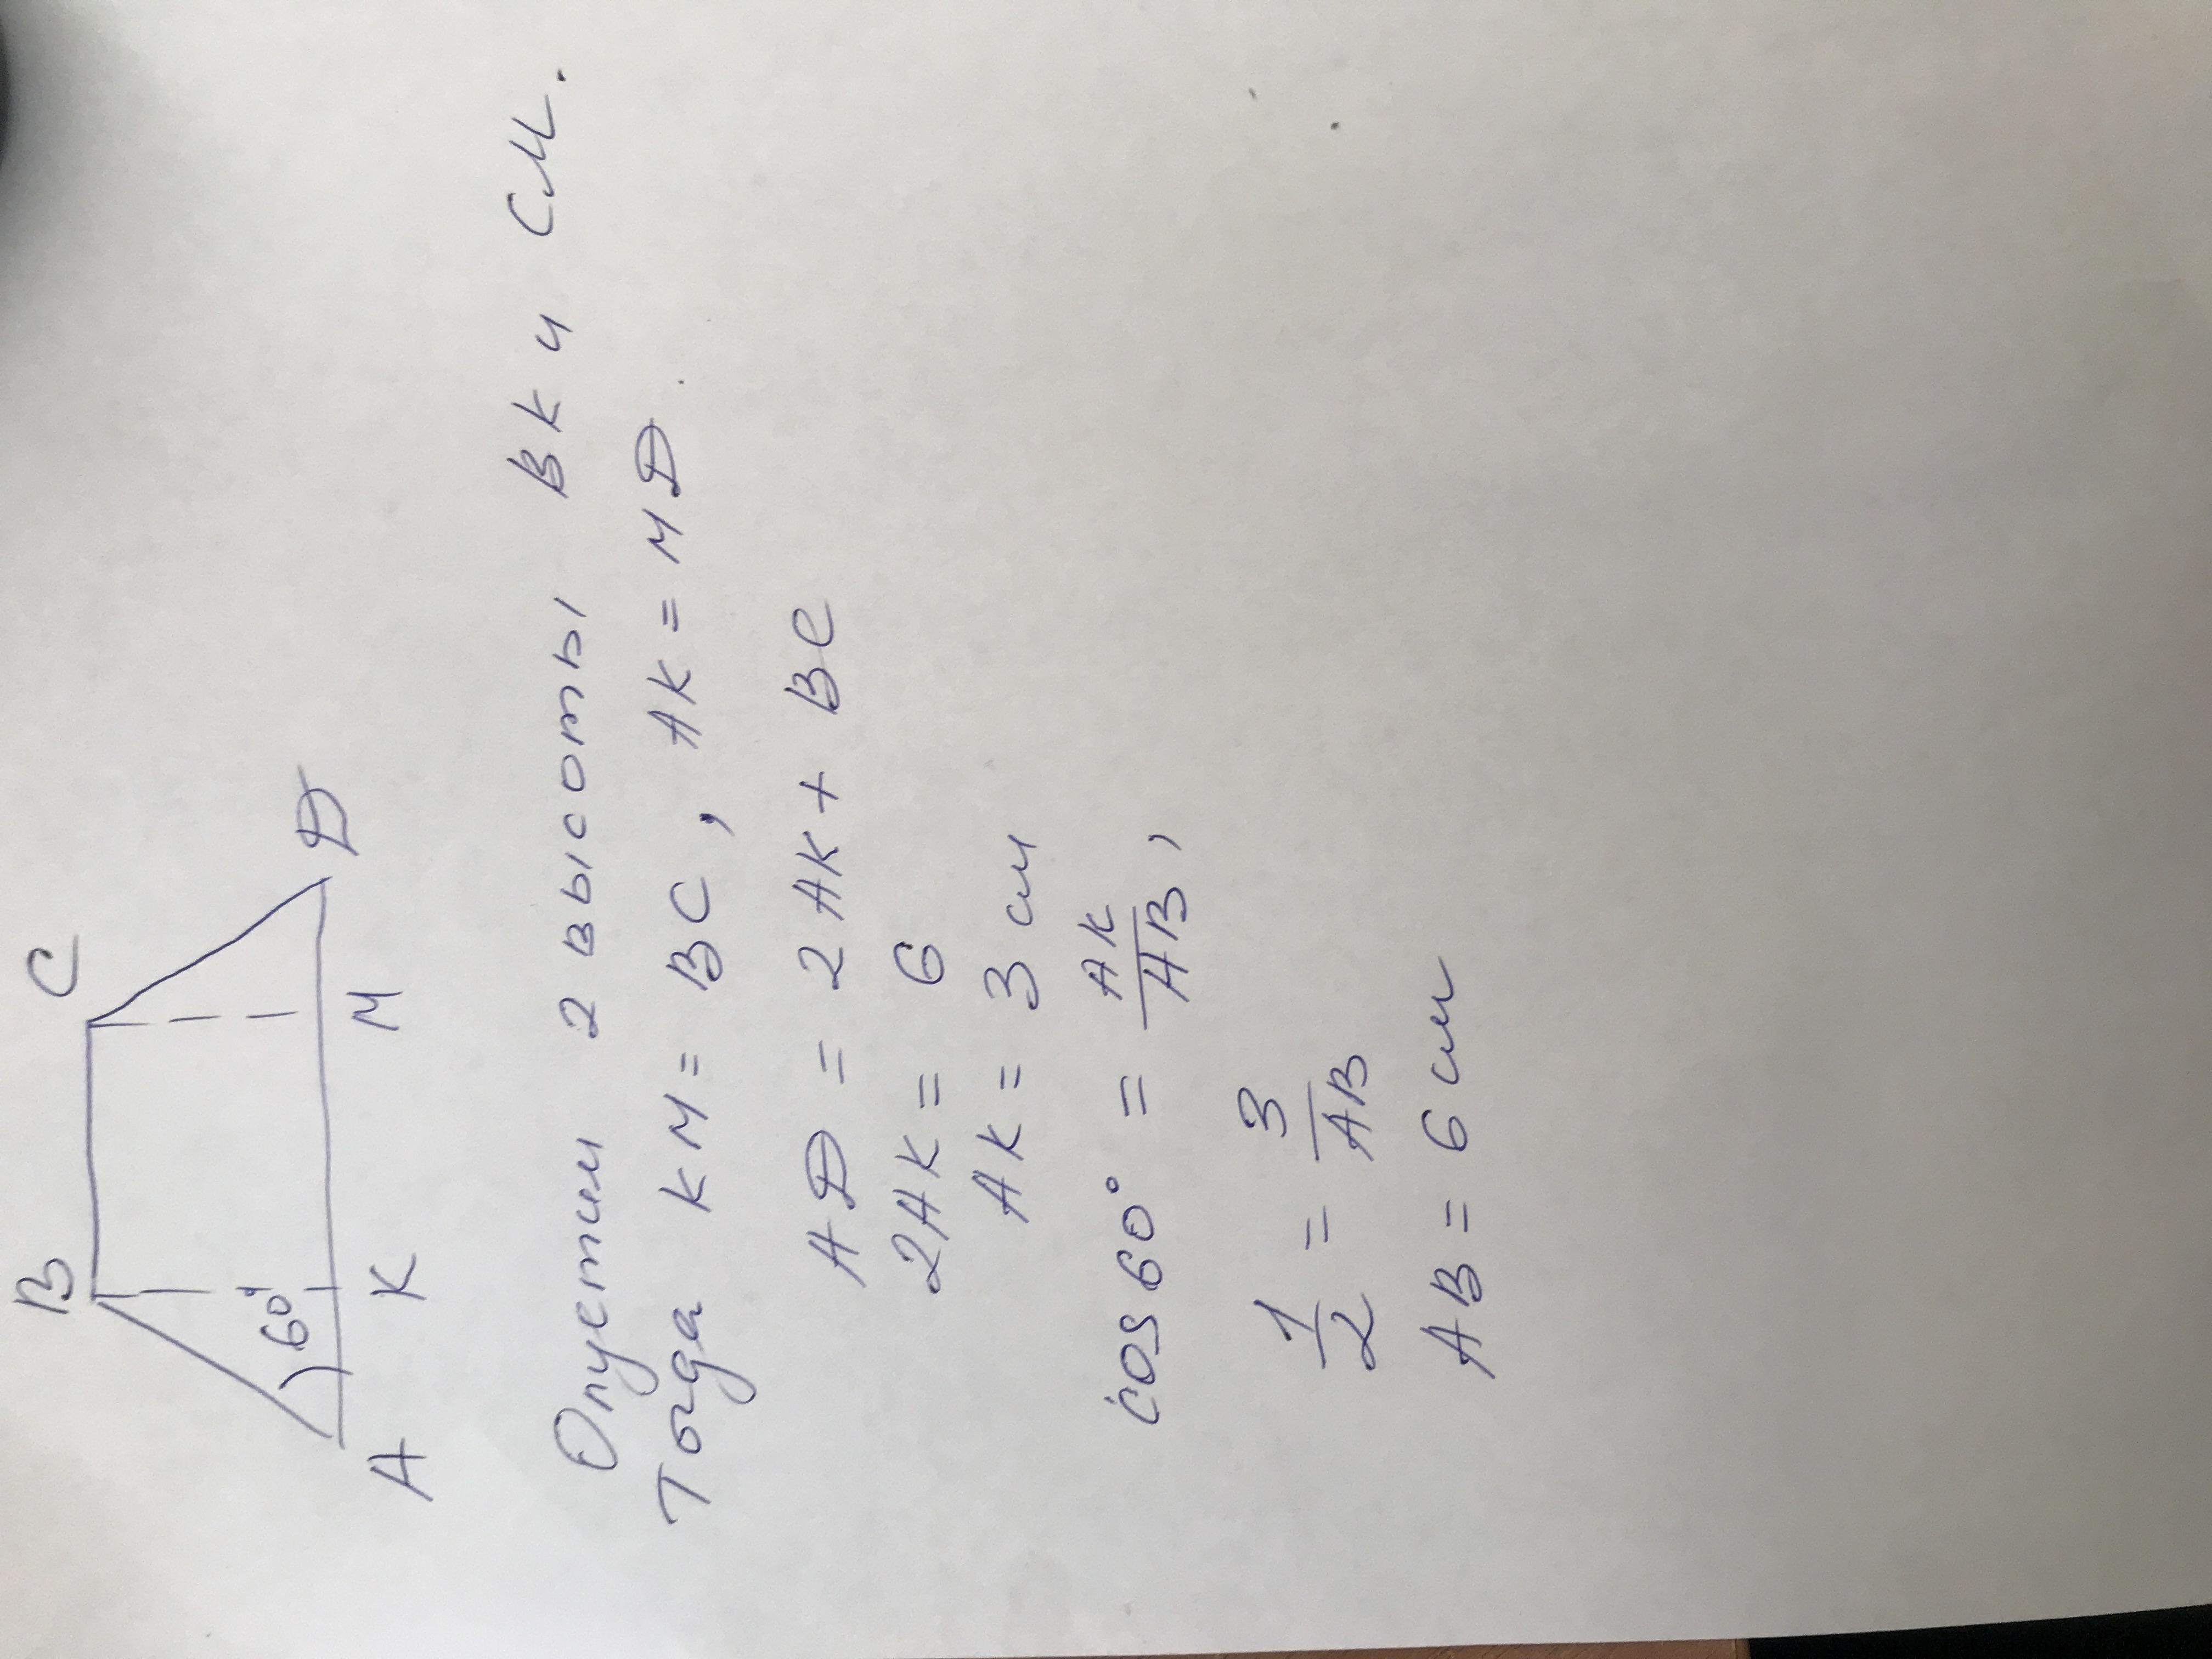 B C
60°
A K M D
Опустим 2 высоты BK и CM.
Тогда KM = BC, AK = MD
AD = 2AK + BC
2AK = 6
AK = 3 см
cos 60° = AK/AB,
1/2 = 3/AB
AB = 6 см